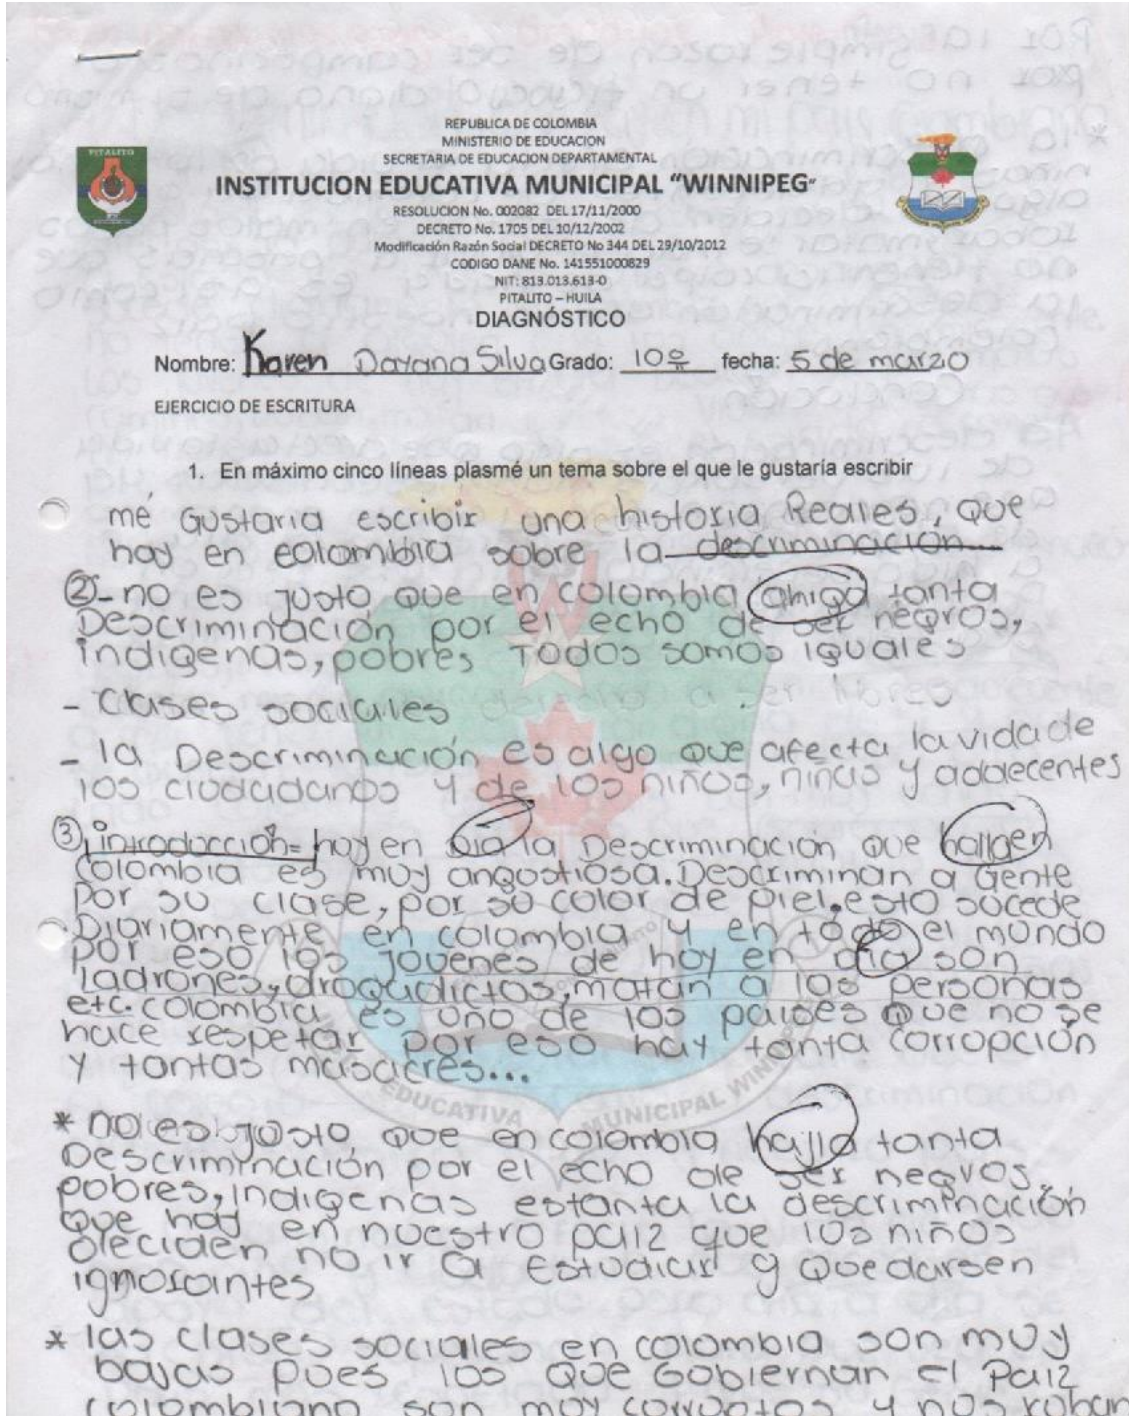 REPUBLICA DE COLOMBIA
MINISTERIO DE EDUCACION
SECRETARIA DE EDUCACION DEPARTAMENTAL
INSTITUCION EDUCATIVA MUNICIPAL “WINNIPEG”
RESOLUCION No. 002082 DEL 17/11/2000
DECRETO No. 1705 DEL 10/12/2002
Modificación Razón Social DECRETO No 344 DEL 29/10/2012
CODIGO DANE No. 141551000829
NIT: 813.013.613-0
PITALITO – HUILA
DIAGNÓSTICO
PITALITO
Nombre: Karen Dayana Silva Grado: 10º fecha: 5 de marzo
EJERCICIO DE ESCRITURA
1. En máximo cinco líneas plasmé un tema sobre el que le gustaría escribir
mé Gustaria escribir una historia Reales, que
hay en colombia sobre la descriminación...
②- no es justo que en colombia tanta
Descriminación por el echo de ser negros,
indigenas, pobres Todos somos iguales
- Clases sociales
- la Descriminación es algo que afecta la vida de
los ciudadanos y de los niños, niñas y adolecentes
③ introducción= hoy en dia la Descriminación que hallaen
Colombia es muy angustiosa. Descriminan a Gente
Por su clase, por su color de piel, esto sucede
Diariamente en colombia y en todo el mundo
por eso los jovenes de hoy en dia son
ladrones, drogadictos, matan a las personas
etc. colombia es uno de los paises que no se
hace respetar por eso hay tanta corropción
y tantas masacres...
EDUCATIVA MUNICIPAL WINN
* no es justo que en colombia hajla tanta
Descriminación por el echo de ser negros,
pobres, indigenas estanta la descriminación
que hay en nuestro paiz que los niños
deciden no ir a estudiar y quedarsen
ignorantes
* las clases sociales en colombia son muy
bajas pues los que Gobiernan el Paiz
colombiano son muy corruptos y nos roban